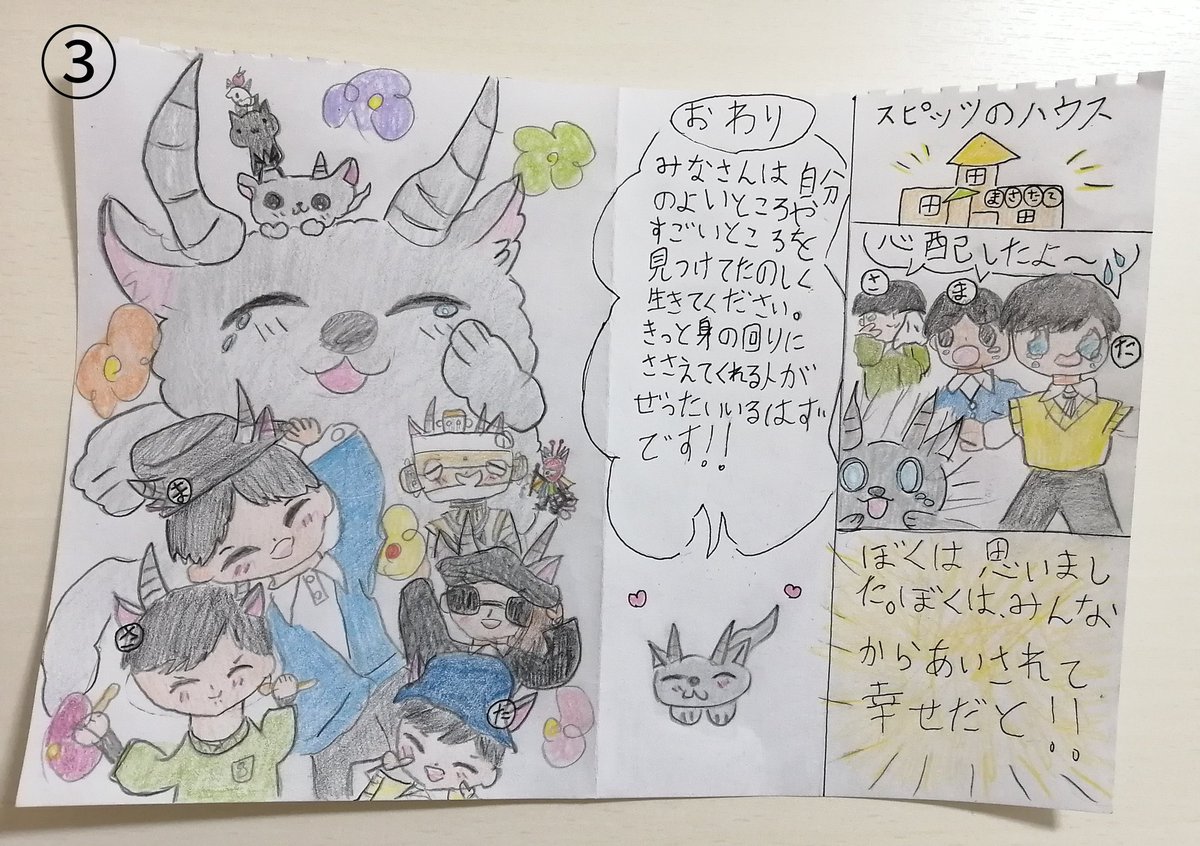 ③
スピッツのハウス
まさたて
心配したよ〜
さ
ま
た
ぼくは思いまし
た。ぼくは、みんな
からあいされて
幸せだと!!
おわり
みなさんは自分
のよいところや
すごいところを
見つけてたのしく
生きてください。
きっと身の回りに
ささえてくれる人が
ぜったいいるはず
です!!
ま
さ
た